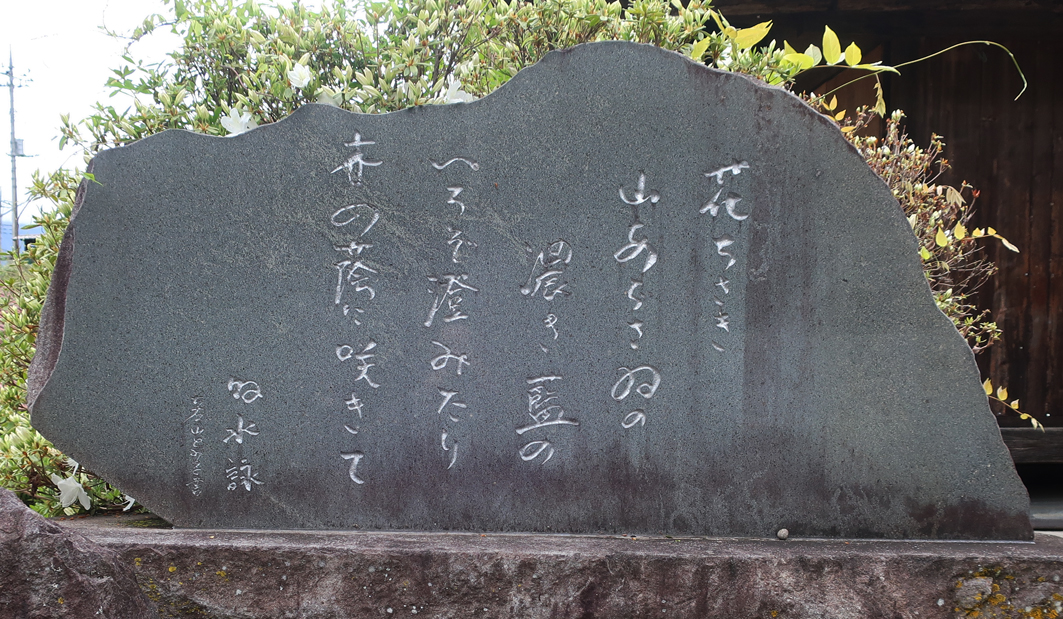 花ちさき
山あちさゐの
濃き藍の
いろそ澄みたり
其の蔭に咲きて
牧水詠